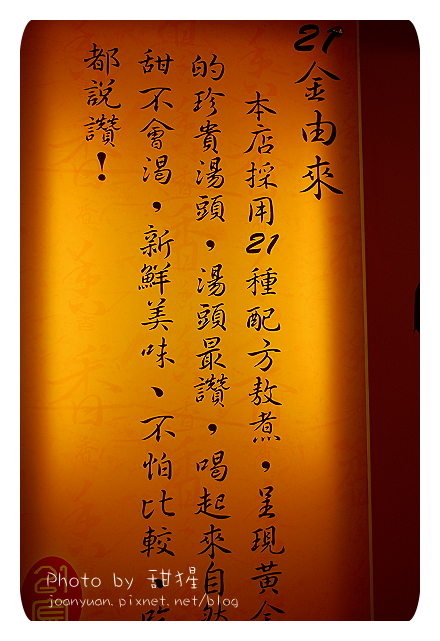 21金由來
本店採用21種配方敖煮，呈現黃金
的珍貴湯頭，湯頭最讚，喝起來自然
甜不會渴，新鮮美味、不怕比較，
都說讚！
Photo by 甜猩
joanyuan.pixnet.net/blog